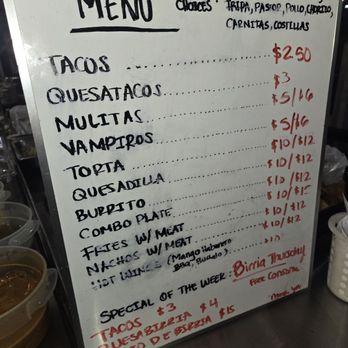 MENU
CHOICES
TRIPA, PASTOR, POLLO, CHORIZO,
CARNITAS, COSTILLAS
TACOS ........ $2.50
QUESATACOS ........ $3
MULITAS ........ $5/$6
VAMPIROS ........ $5/$6
TORTA ........ $10/$12
QUESADILLA ........ $10/$12
BURRITO ........ $10/$12
COMBO PLATE ........ $10/$15
FRIES W/ MEAT ........ $10/$12
NACHOS W/ MEAT ........ $10/$12
HOT WINGS (Mango Habanero
BBQ, Buffalo)
SPECIAL OF THE WEEK: Birria Thursday!
FREE CONSOME
TACOS $3
QUESABIRRIA $4
DE BIRRIA $15